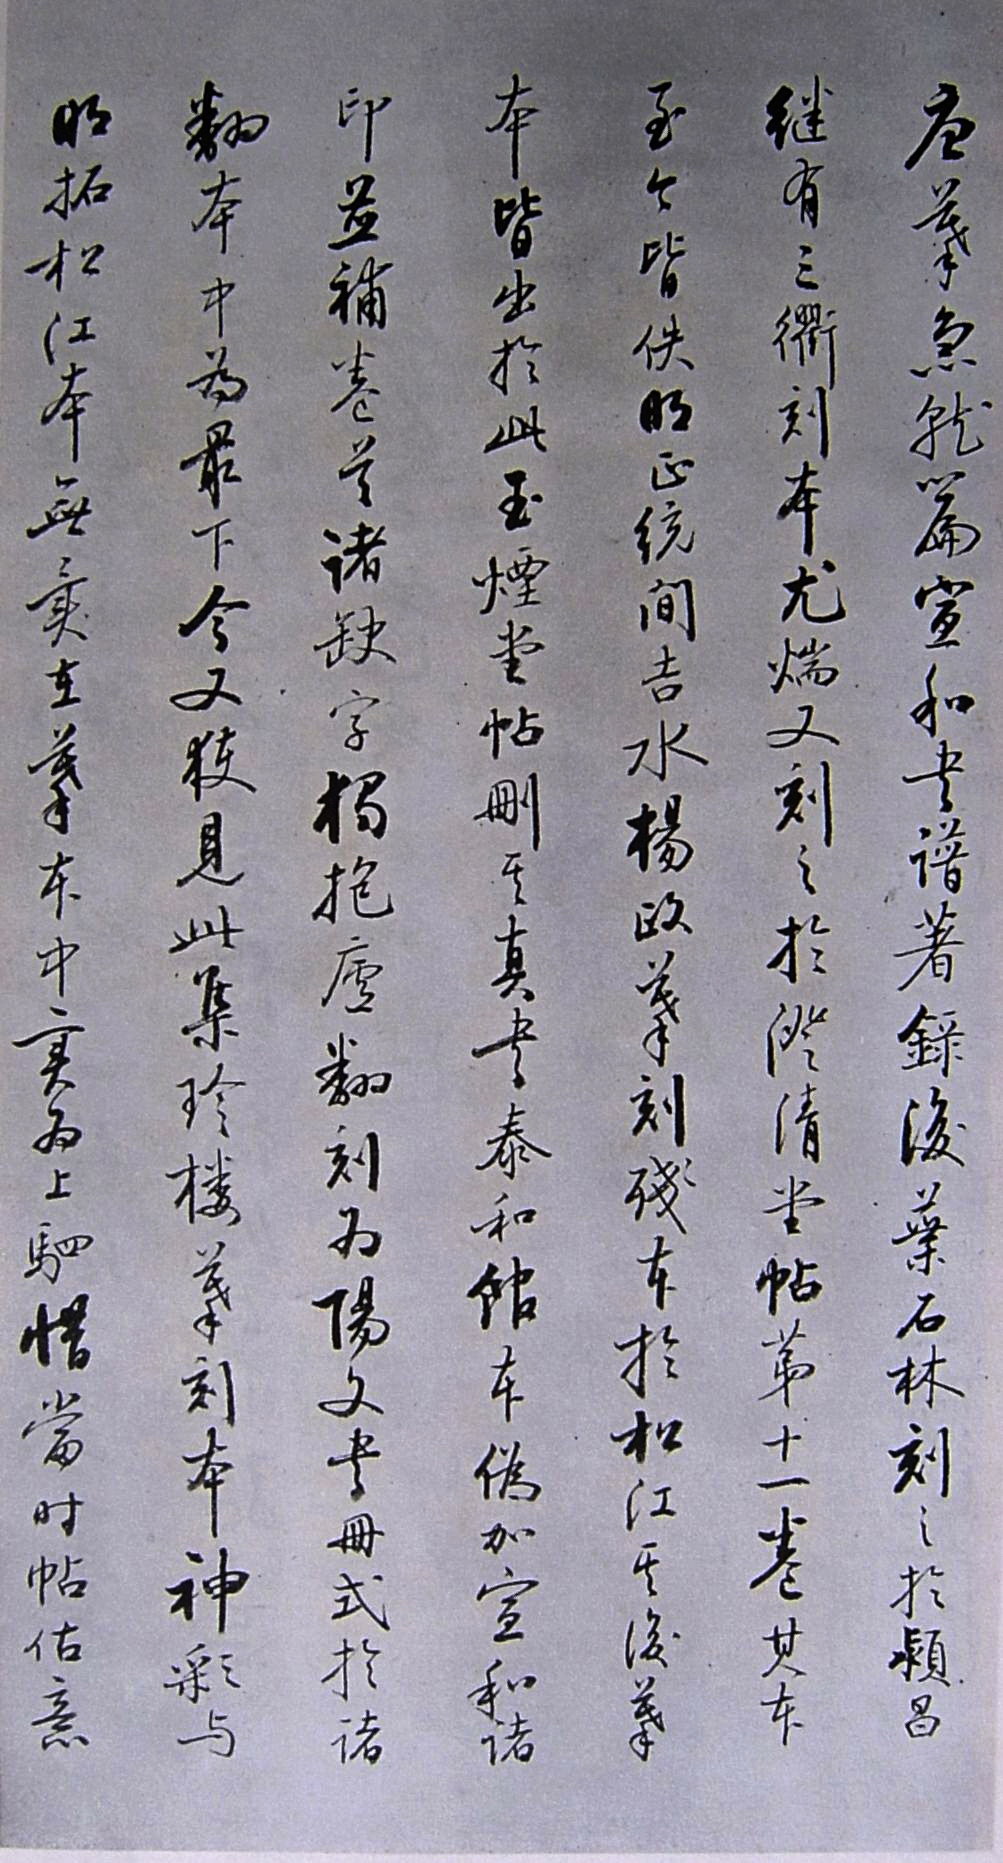 唐摹急就篇宣和书谱著錄後葉石林刻之於颖昌
继有三衢刻本尤焴又刻之於澄清堂帖第十一卷其本
至今皆佚明正统间吉水楊政摹刻残本於松江其後摹
本皆出於此玉煙堂帖刪其真书泰和館本偽加宣和诸
印並補卷首诸缺字独抱廬翻刻为陽文书冊式於诸
翻本中为最下今又获見此集珍楼摹刻本神彩与
明拓松江本無異在摹本中實为上駟惜當时帖估意